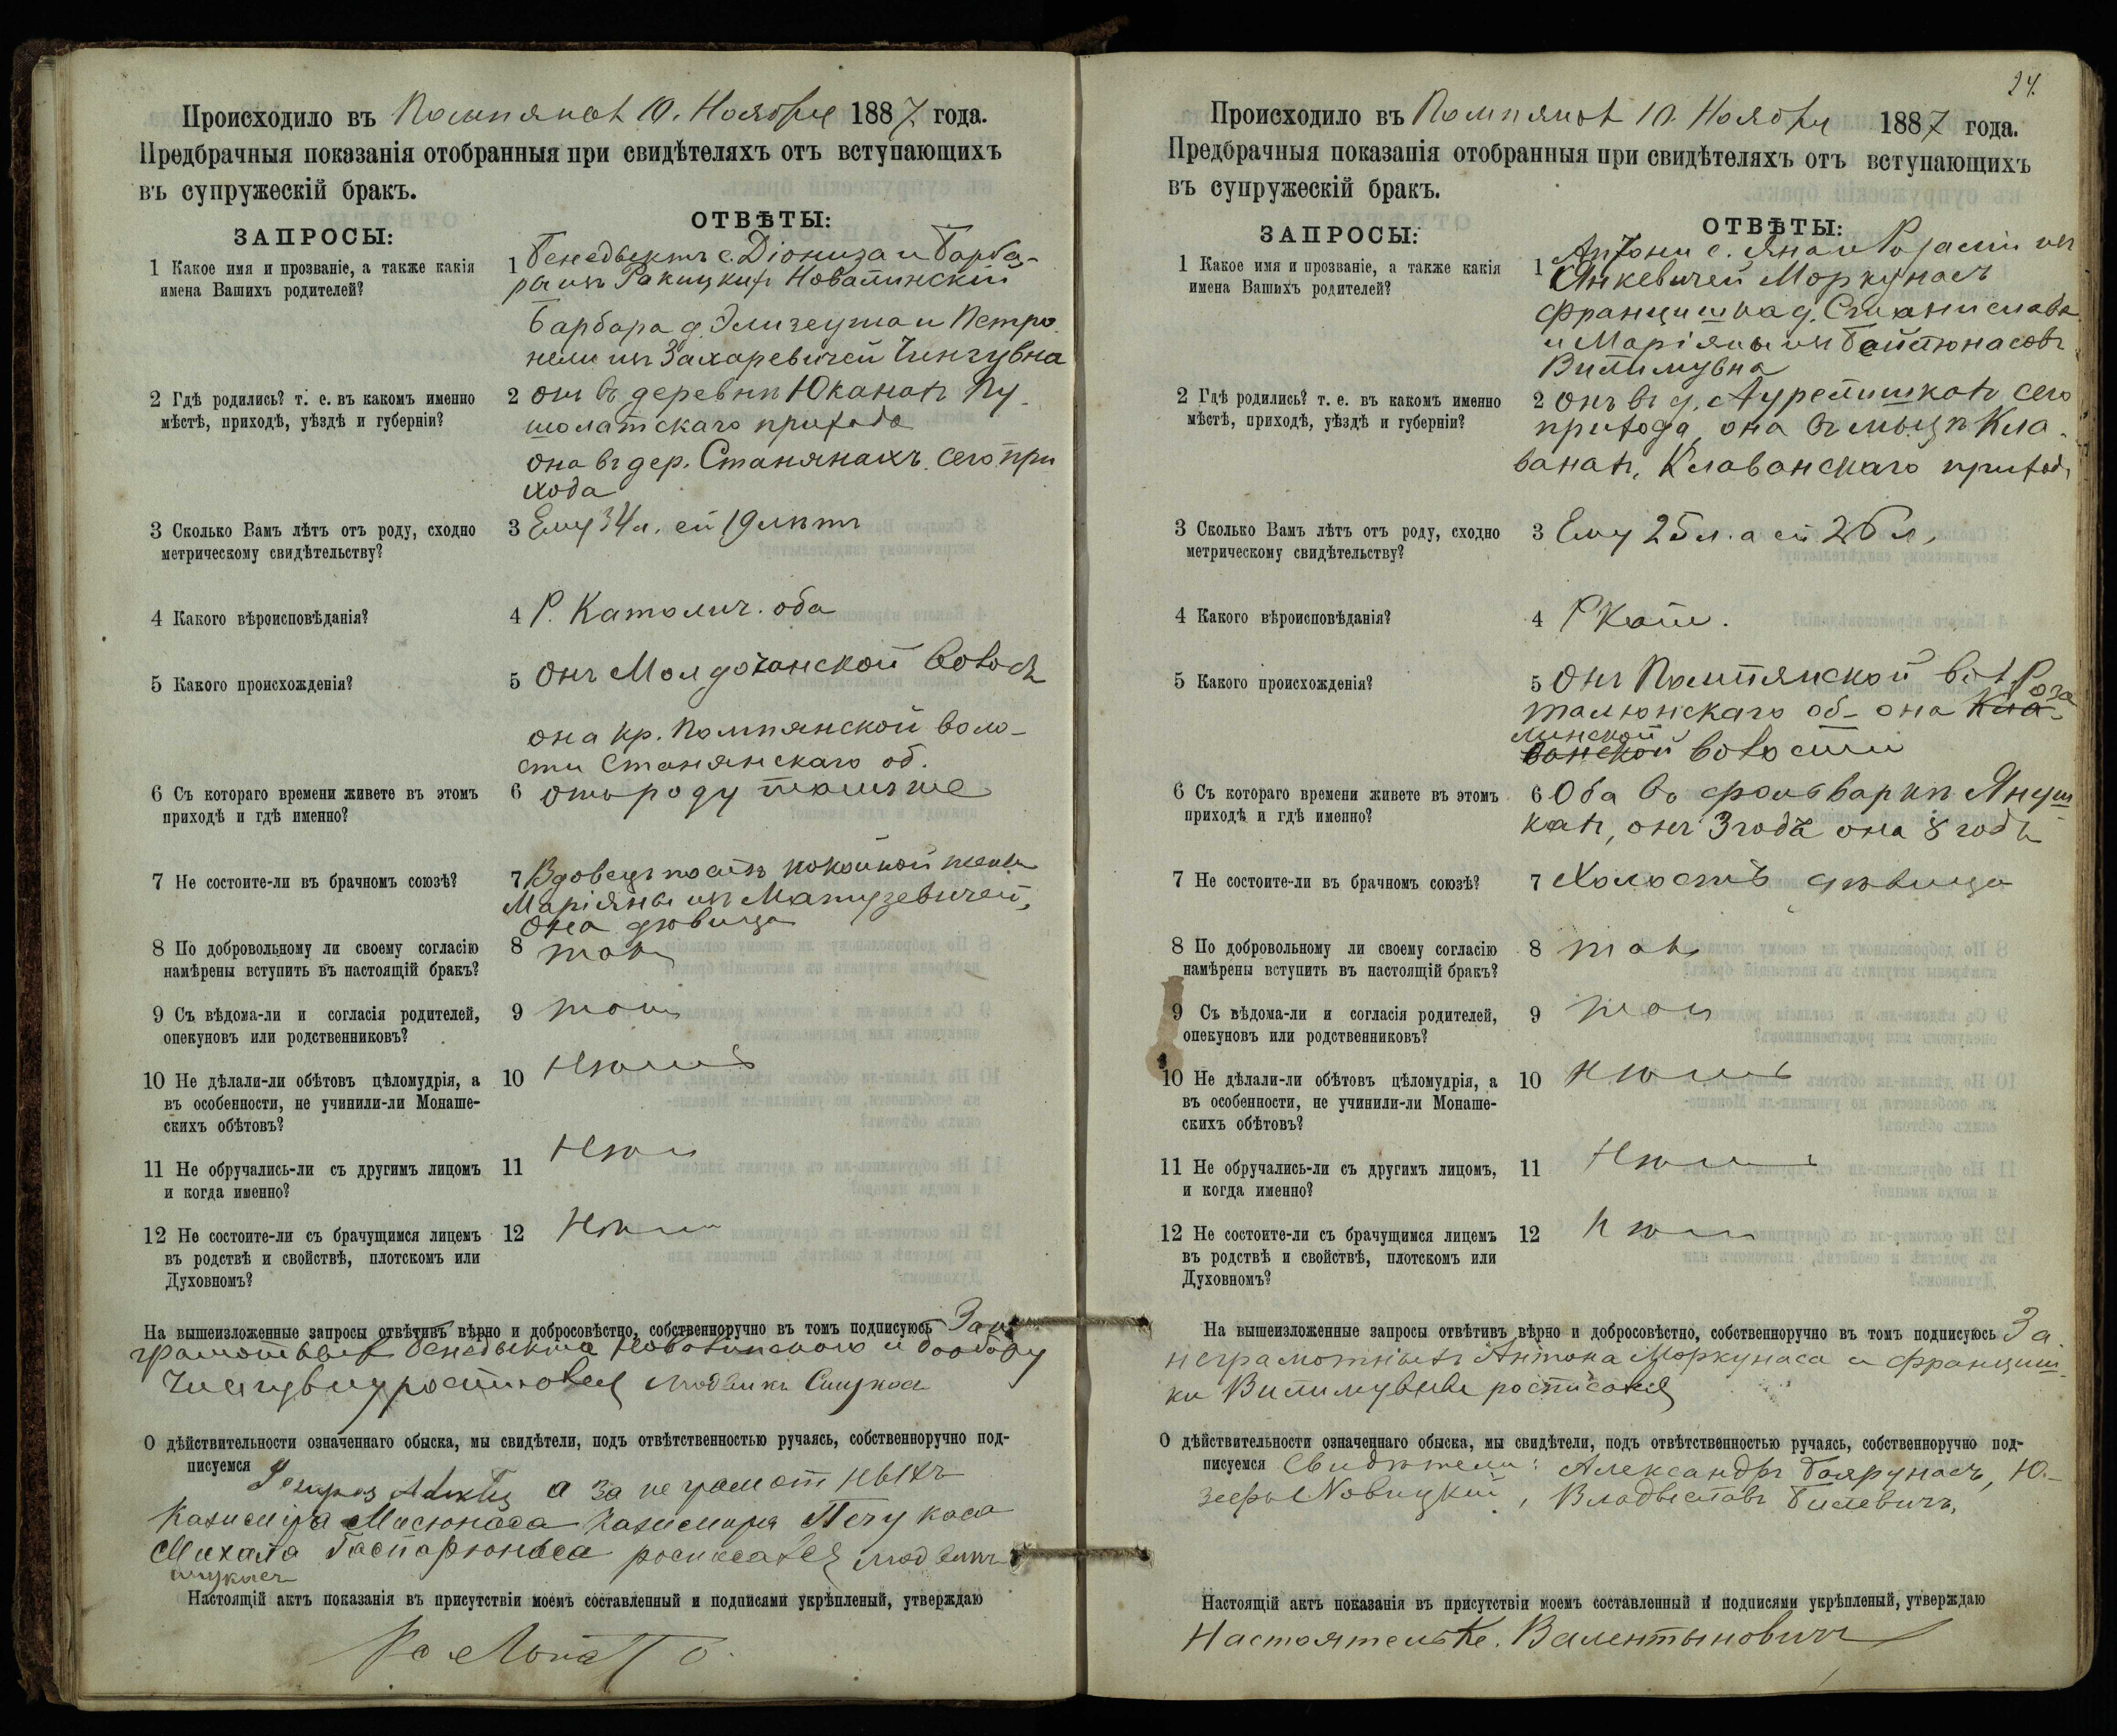 Происходило въ Помпянах 10. Ноября 1887 года.
Предбрачныя показанія отобранныя при свидѣтеляхъ отъ вступающихъ
въ супружескій бракъ.
ЗАПРОСЫ:
ОТВѢТЫ:
1 Какое имя и прозваніе, а также какія
имена Вашихъ родителей?
1 Бенедыктъ с. Діониза и Барба-
ры изъ Ракицких Новалинскій
Барбара д. Элизеуша и Петро
нели изъ Захаревичей Чингувна
2 Гдѣ родились? т. е. въ какомъ именно
мѣстѣ, приходѣ, уѣздѣ и губерніи?
2 онъ въ деревни Юканах Пу-
шолатскаго прихода
она въ дер. Станянахъ сего при
хода
3 Сколько Вамъ лѣтъ отъ роду, сходно
метрическому свидѣтельству?
3 Ему 34 л. ей 19 лѣтъ
4 Какого вѣроисповѣданія?
4 Р. Католич. оба
5 Какого происхожденія?
5 Онъ
она кр. Помпянской воло-
сти Станянскаго об.
6 Съ котораго времени живете въ этомъ
приходѣ и гдѣ именно?
6 отъ роду тамъ же
7 Не состоите-ли въ брачномъ союзѣ?
7 Вдовецъ послѣ покойной жены
Маріяны изъ Матузевичей,
Она дѣвица
8 По добровольному ли своему согласію
намѣрены вступить въ настоящій бракъ?
8 такъ
9 Съ вѣдома-ли и согласія родителей,
опекуновъ или родственниковъ?
9 такъ
10 Не дѣлали-ли обѣтовъ цѣломудрія, а
въ особенности, не учинили-ли Монаше-
скихъ обѣтовъ?
10 Нѣтъ
11 Не обручались-ли съ другимъ лицомъ
и когда именно?
11 Нѣтъ
12 Не состоите-ли съ брачущимся лицемъ
въ родствѣ и свойствѣ, плотскомъ или
Духовномъ?
12 Нѣтъ
На вышеизложенные запросы отвѣтивъ вѣрно и добросовѣстно, собственноручно въ томъ подписуюсь За не
грамотных Бенедыкта Новалинскаго и Барбару
Чингувну
О дѣйствительности означеннаго обыска, мы свидѣтели, подъ отвѣтственностью ручаясь, собственноручно под-
писуемся а за неграмотныхъ
Казиміра Мисюнаса Казимира Печукаса
Михала Гаспарюнаса росписался
Настоящій актъ показанія въ присутствіи моемъ составленный и подписями укрѣпленый, утверждаю
24.
Происходило въ Помпянах 10. Ноября 1887 года.
Предбрачныя показанія отобранныя при свидѣтеляхъ отъ вступающихъ
въ супружескій бракъ.
ЗАПРОСЫ:
ОТВѢТЫ:
1 Какое имя и прозваніе, а также какія
имена Вашихъ родителей?
1 Антони с. Яна и Розаліи изъ
Янкевичей Моркунасъ
Францишка д. Станислава
и Маріяны изъ
Вилимувна
2 Гдѣ родились? т. е. въ какомъ именно
мѣстѣ, приходѣ, уѣздѣ и губерніи?
2 онъ въ д. сего
прихода, она въ Кла-
ванах, Клованскаго прихода
3 Сколько Вамъ лѣтъ отъ роду, сходно
метрическому свидѣтельству?
3 Ему 25 л. а ей 26 л.
4 Какого вѣроисповѣданія?
4 Р Кат.
5 Какого происхожденія?
5 Онъ Помпянской вол.
об- она Роза
линской волости
6 Съ котораго времени живете въ этомъ
приходѣ и гдѣ именно?
6 Оба въ фольваркѣ Януш
ках, онъ 3 года она 8 годъ
7 Не состоите-ли въ брачномъ союзѣ?
7 Холостъ дѣвица
8 По добровольному ли своему согласію
намѣрены вступить въ настоящій бракъ?
8 такъ
9 Съ вѣдома-ли и согласія родителей,
опекуновъ или родственниковъ?
9 такъ
10 Не дѣлали-ли обѣтовъ цѣломудрія, а
въ особенности, не учинили-ли Монаше-
скихъ обѣтовъ?
10 Нѣтъ
11 Не обручались-ли съ другимъ лицомъ,
и когда именно?
11 Нѣтъ
12 Не состоите-ли съ брачущимся лицемъ
въ родствѣ и свойствѣ, плотскомъ или
Духовномъ?
12 Нѣтъ
На вышеизложенные запросы отвѣтивъ вѣрно и добросовѣстно, собственноручно въ томъ подписуюсь За
неграмотныхъ Антона Моркунаса и Францишк
ки Вилимувны росписался
О дѣйствительности означеннаго обыска, мы свидѣтели, подъ отвѣтственностью ручаясь, собственноручно под-
писуемся Свидѣтели: Александръ Боярунасъ, Ю-
зефъ Новицкій, Владыславъ Билевичъ,
Настоящій актъ показанія въ присутствіи моемъ составленный и подписями укрѣпленый, утверждаю
Настоятель Кс. Валентыновичъ